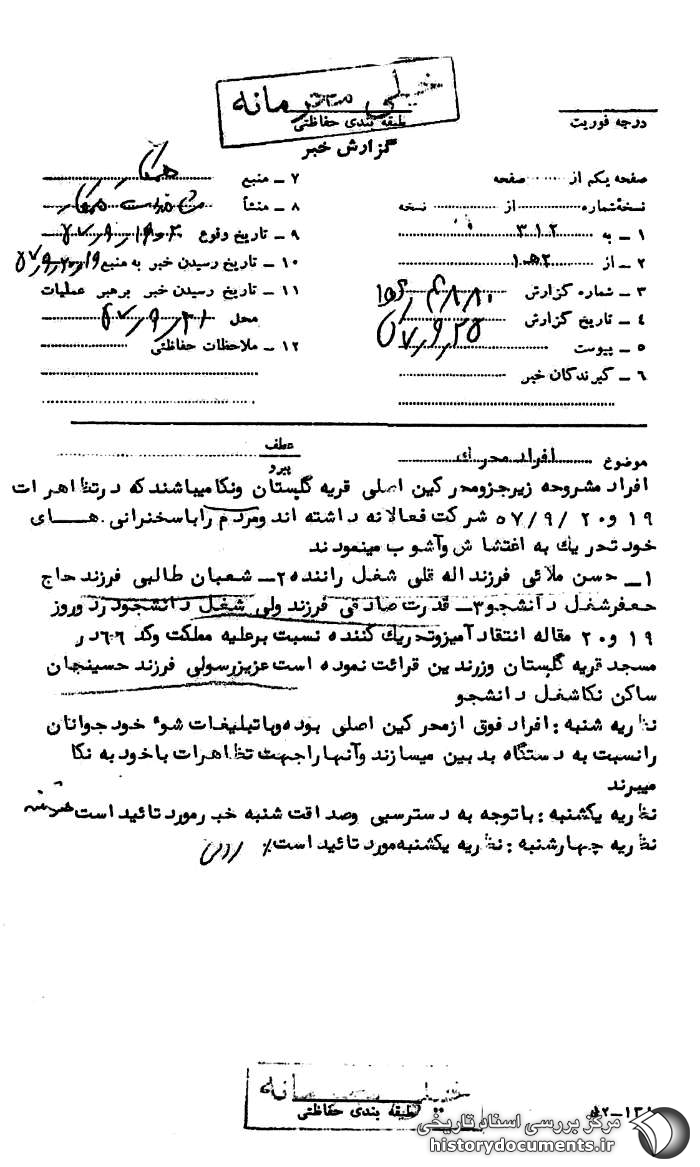 خیلی محرمانه
طبقه بندی حفاظتی
درجه فوریت
گزارش خبر
صفحه یکم از صفحه
نسخه‌شماره از نسخه
۱ ـ به ۳۱۲
۲ ـ از
۳ ـ شماره گزارش
۴ ـ تاریخ گزارش ۵۷٫۹٫۲۵
۵ ـ پیوست
۶ ـ گیرندگان خبر
۷ ـ منبع همکار
۸ ـ منشأ همکار
۹ ـ تاریخ وقوع
۱۰ ـ تاریخ رسیدن خبر به منبع
۱۱ ـ تاریخ رسیدن خبر برهبر عملیات
محل
۱۲ ـ ملاحظات حفاظتی
موضوع افراد محرك
عطف
پیرو
افراد مشروحه زیرجزومحرکین اصلی قریه گلستان ونکامیباشندکه درتظاهرات
۱۹ و۲۰ /۹/ ۵۷ شرکت فعالانه داشته اند ومردم راباسخنرانی های
خود تحریك به اغتشاش وآشوب مینمودند
۱ـ حسن ملائی فرزند اله قلی شغل راننده ۲ـ شعبان طالبی فرزند حاج
جعفرشغل دانشجو۳ـ قدرت صادقی فرزندولی شغل دانشجودردوروز
۱۹ و۲۰ مقاله انتقادآمیزوتحریك کننده نسبت برعلیه مملکت وکد ۶۶در
مسجد قریه گلستان وزرندین قرائت نموده است عزیزرسولی فرزند حسینجان
ساکن نکاشغل دانشجو
نظریه شنبه : افراد فوق ازمحرکین اصلی بوده‌وباتبلیغات شوء خودجوانان
رانسبت به دستگاه بدبین میسازند وآنهاراجهت تظاهرات باخودبه نکا
میبرند
نظریه یکشنبه : باتوجه به دسترسی وصداقت شنبه خبرمورد تائید است
نظریه چهارشنبه : نظریه یکشنبه‌مورد تائید است٪
طبقه بندی حفاظتی
مرکز بررسی اسناد تاریخی
historydocuments.ir